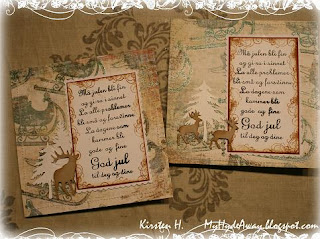 Må julen bli fin
og gi ro i sinnet
La alle problemer
bli små og forsvinne
La dagene som
kommer bli
gode og fine
God jul
til deg og dine
Må julen bli fin
og gi ro i sinnet
La alle problemer
bli små og forsvinne
La dagene som
kommer bli
gode og fine
God jul
til deg og dine
Kirsten H. MyHydeAway.blogspot.com